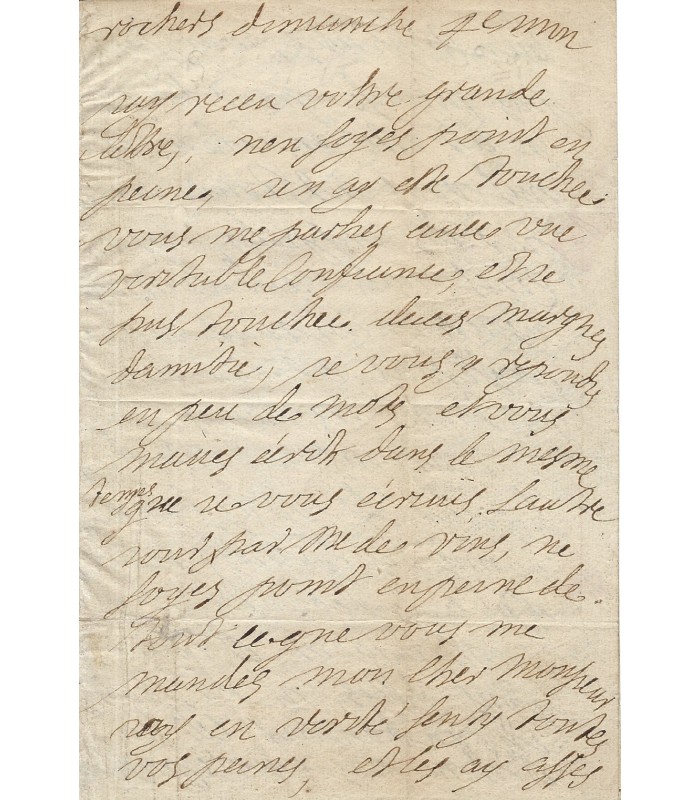 rochers dimanche 4e mon
jay receu vostre grande
lettre, nen soyes point en
peine, jen ay esté touchee
vous me parles avec une
veritable confiance, et je
suis touchee de ces marques
damitié, je vous y repondis
en peu de mots et vous
mavies écrit dans le mesme
temps
que je vous écrivis lautre
jour par Me de vins, ne
soyes point en peine de
tout ce que vous me
mandes mon cher Monsieur
jay en verité senty toutes
vos peines, et les ay asses